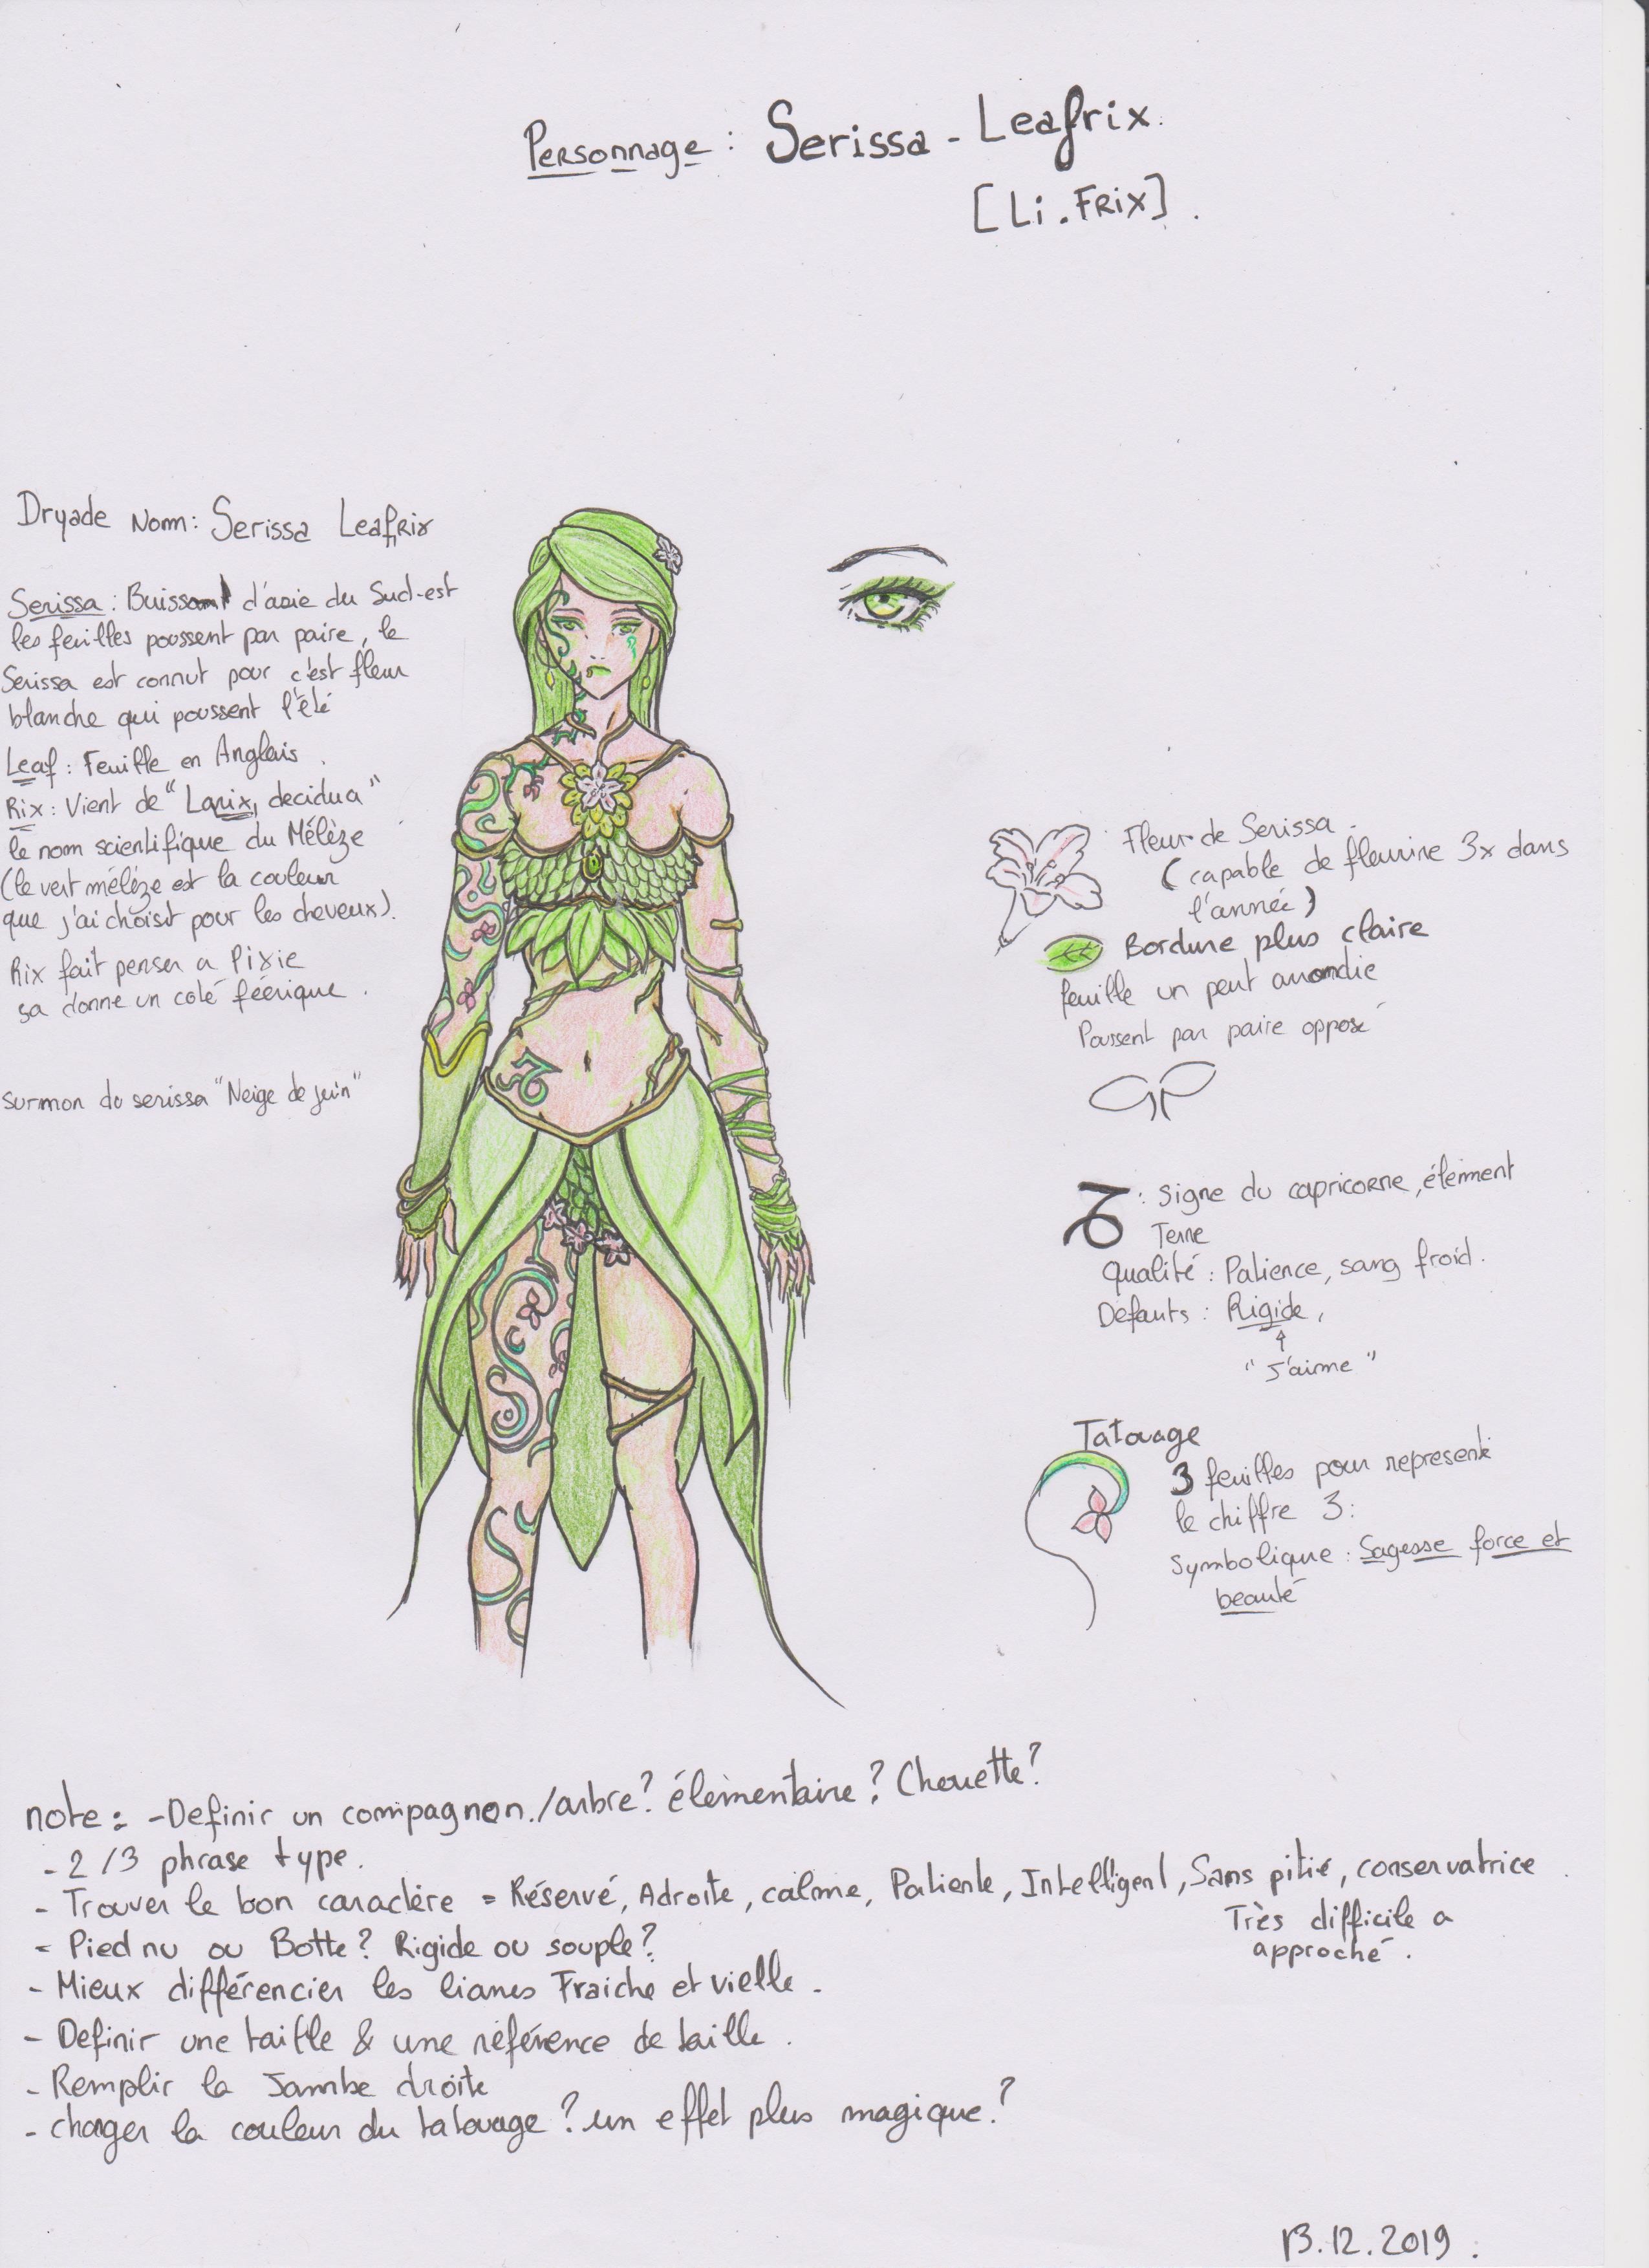 Personnage : Serissa - Leafrix.
[Li.Frix].
Dryade Nom : Serissa Leafrix
Serissa : Buissant d'asie du Sud-est
les feuilles poussent par paire, le
Serissa est connut pour c'est fleur
blanche qui poussent l'été
Leaf : Feuille en Anglais.
Rix : Vient de "Larix, decidua"
le nom scientifique du Mélèze
(le vert mélèze est la couleur
que j'ai choisit pour les cheveux).
Rix fait penser a Pixie
sa donne un coté féérique.
surmon du serissa "Neige de juin"
Fleur de Serissa.
(capable de fleurire 3x dans
l'année)
Bordure plus claire
feuille un peut arrondie
Poussent par paire opposé
: signe du capricorne, élément
Terre
Qualité : Patience, sang froid.
Défauts : Rigide,
"J'aime"
Tatouage
3 feuilles pour representé
le chiffre 3:
Symbolique : Sagesse force et
beauté
note : - Definir un compagnon./arbre? élémentaire? Chouette?
- 2/3 phrase type.
- Trouver le bon caractère = Réservé, Adroite, calme, Patiente, Intelligent, Sans pitié, conservatrice.
Très difficile a
approché.
- Pied nu ou Botte? Rigide ou souple?
- Mieux différencier les lianes Fraiche et vielle.
- Definir une taille & une référence de taille.
- Remplir la Jambe droite
- changer la couleur du tatouage? un effet plus magique?
13.12.2019.